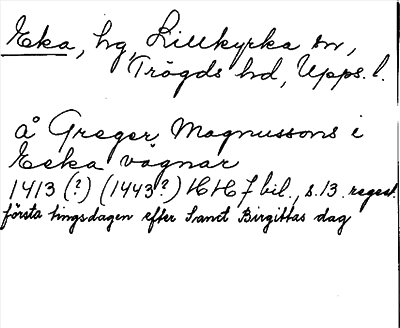 Eka, hg, Lillkyrka sn,
Trögds hd, Upps. l.
å Greger Magnussons i
Ecka vägnar
1413 (?) (1443?) HH 7 bil., s. 13. regest.
första tingsdagen efter Sanct Birgittas dag